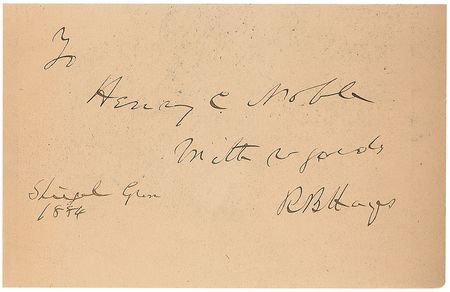 To
Henry C Noble
With regards
Spiegel Grove
1884
R B Hayes